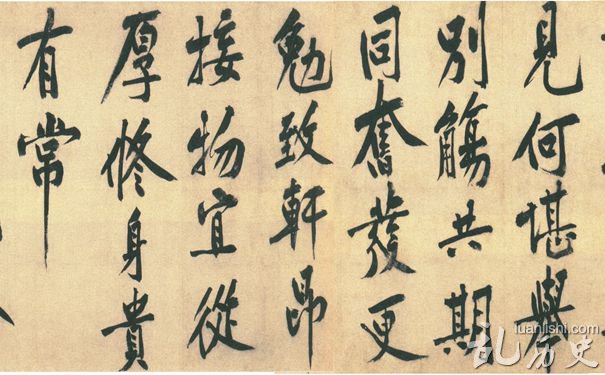 見何堪舉
別觴共期
同奮發更
勉致軒昂
接物宜從
厚修身貴
有常
luanlishi.com
乱历史